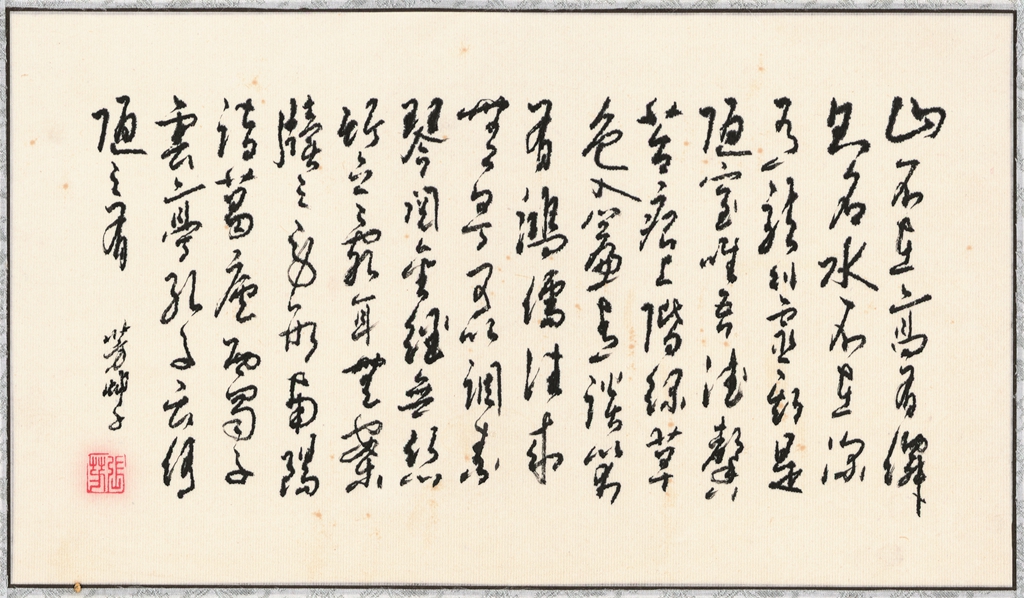 山不在高有僊
名水不在深
有龍則靈斯是
陋室唯吾德馨
苔痕上階綠草
色入簾青談笑
有鴻儒往來
無白丁可以調素
琴閱金經無絲
竹之亂耳無案
牘之勞形南陽
諸葛廬西蜀子
雲亭孔子云何
陋之有